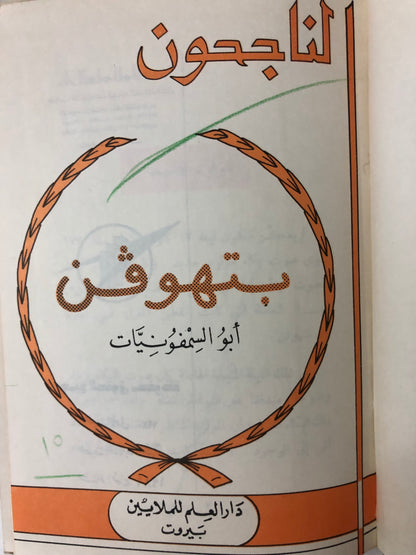 الناجحون
بتهوڤن
أبو السِمفونيَّات
١٥
دار العلم للملايين
بيروت